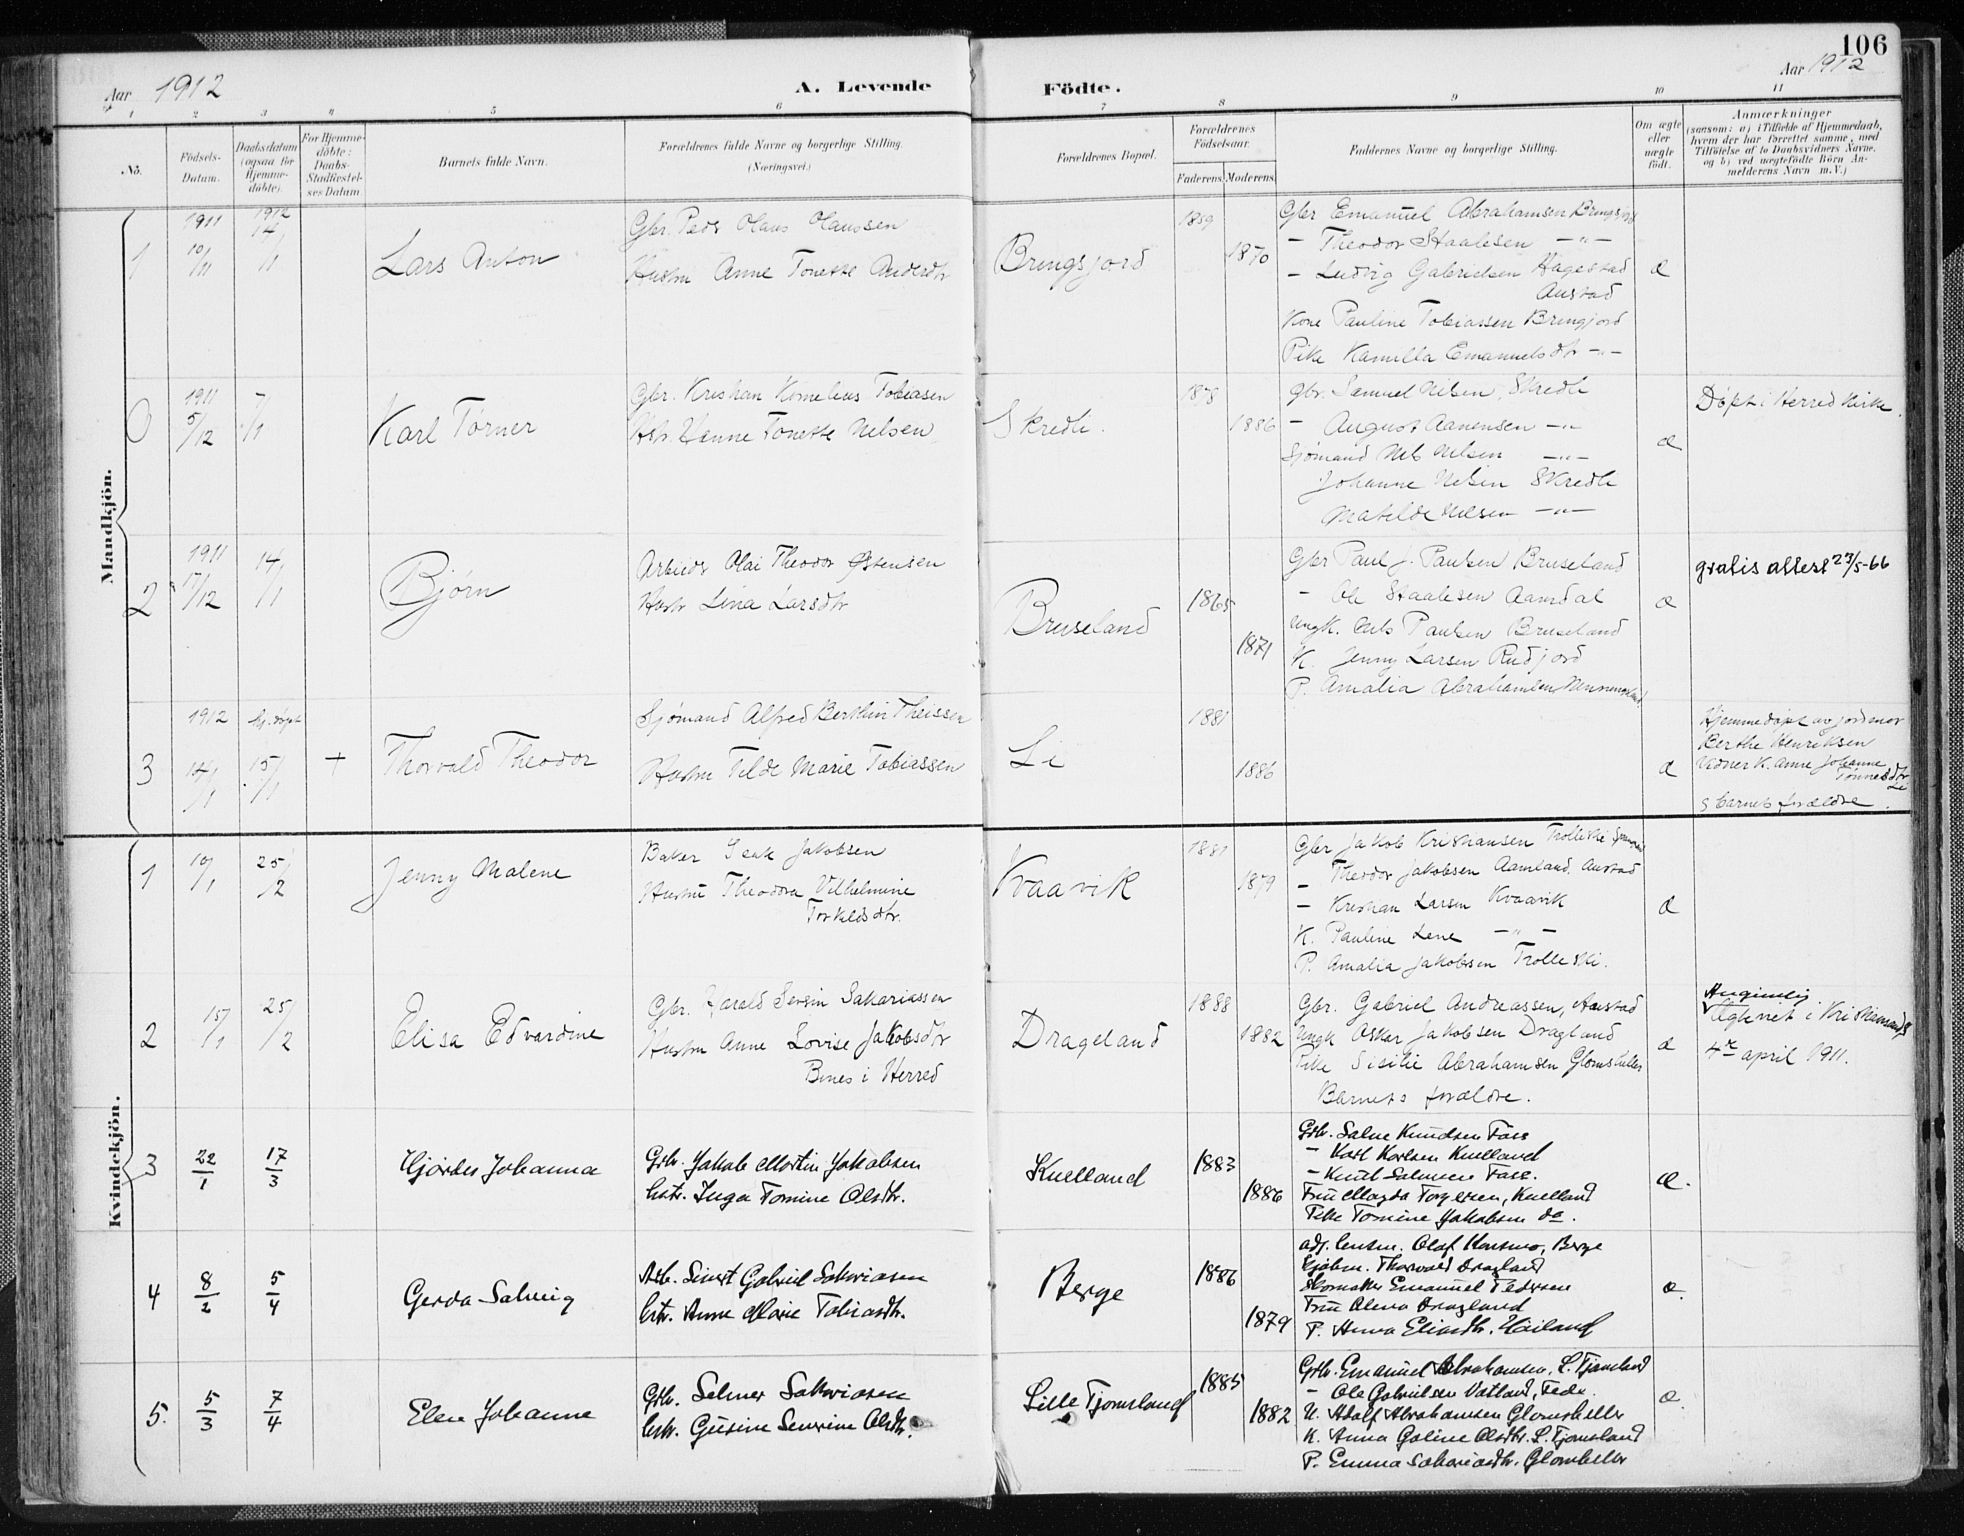 106
Aar 1912
A. Levende Födte.
Aar 1912
1 2 3 4 5 6 7 8 9 10 11
No.
Födsels-Datum.
Daabsdatum (ogsaa for Hjemmedöbte).
For Hjemmedöbte: Daabs-Stadfæstelses Datum.
Barnets fulde Navn.
Forældrenes fulde Navne og borgerlige Stilling. (Næringsvei.)
Forældrenes Bopæl.
Forældrenes Födselsaar.
Faderens. Moderens.
Faddernes Navne og borgerlige Stilling.
Om ægte eller uægte födt.
Anmærkninger
(saasom: a) i Tilfælde af Hjemmedaab,
hvem der har forrettet samme, med
Tilföielse af to Daabsvidners Navne,
og b) ved uægtefödte Börn An-
melderens Navn m.V.)
Mandkjön.
1
1911 10/11
1912 14/1
Lars Anton
Gbr. Peder Olaus Olaussen
Hustru Anne Tonette Andersdtr
Bringsjord
1859
1870
Gbr Emanuel Abrahamsen Bringsjord
- Theodor Staalesen -"-
- Ludvig Gabrielsen Hagestad
Austad
Kone Pauline Tobiassen Bringjord
Pike Kamilla Emanuelsdtr -"-
æ
0
1911 5/12
7/1
Karl Tørner
Gbr. Kristian Kornelius Tobiasen
Hstr. Hanne Tonette Nelsen
Skredli.
1878
1886
Gbr. Samuel Nilsen, Skredli
- August Aanensen -"-
Sjømand Nils Nilsen -"-
Johanne Nilsen Skredli
Matilde Nilsen -"-
æ
Døpt i Herred Kirke.
2
1911 17/12
14/1
Bjørn
Arbeider Olai Theodor Østensen
Hustr Lina Larsdtr
Bruseland
1865
1871
Gbr Paul J. Paulsen Bruseland
- Ole Staalesen Aamdal
Ungk. Nils Paulsen Bruseland
K. Jenny Larsen Rudjord
P. Amalia Abrahamsen
æ
gratis attest 23/5-66
3
1912 14/1
Hj.døpt 15/1
+
Thorvald Theodor
Sjømand Alfred Berthin Theissen
Hustru Tilde Marie Tobiassen
Li
1881
1886
æ
Hjemmedøpt av jordmor
Berthe Henriksen
Vidner K. Anne Johanne
Tønnesdtr Li
& barnets forældre.
Kvindekjön.
1
10/1
25/2
Jenny Malene
Baker Isak Jakobsen
Hustru Theodora Vilhelmine
Torkildsdtr.
Kvaavik
1881
1879
Gbr Jakob Kristiansen Trolleski
- Theodor Jakobsen Aamland. Austad
- Kristian Larsen Kvaavik
K. Pauline Lene -"-
P. Amalia Jakobsen Trolleski.
æ
2
15/1
25/2
Elisa Edvardine
Gbr. Harald Sakariassen
Hustru Anne Lovise Jakobsdtr
Boes i Herred
Drageland
1888
1882
Gbr. Gabriel Andreassen, Austad
Ungk Oskar Jakobsen Dragland
Pike Sisilie Abrahamsen Glomsheller
Barnets forældre.
æ
Angivelig
Egteviet i Kristiansand
4de april 1911.
3
22/1
17/3
Hjørdes Johanna
Grbr. Jakob Martin Jakobsen
hstr. Inga Tomine Olsdtr.
Kuelland
1883
1886
Grbr. Salve Knudsen Foss
- Karl Karlsen Kuelland
- Knut Salvesen Foss.
Fru Magda Torgersen, Kuelland
Pike Tomine Jakobsen do.
æ.
4
8/2
5/4
Gerda Solveig
Arb. Sivert Gabriel Sakariasen
hstr. Anne Marie Tobiasdtr.
Berge
1886
1879
adj. lensm. Olaf Konsmo, Berge
Kjøbm. Thorvald Dragland
Skomaker Emanuel Pedersen
Fru Alena Dragland
P. Anna Eliasdtr. Høiland
æ.
5.
5/3
7/4
Elen Johanne
Grbr. Selmer Sakariasen
hstr. Gusine Severine Olsdtr.
Lille Tjomsland
1885
1882
Grbr. Emanuel Abrahamsen, L. Tjomsland
- Ole Gabrielsen Vatland, Feda.
U. Adolf Abrahamsen Glomsheller
K. Anna Goline Olsdtr. L. Tjomsland
P. Emma Sakariasdtr. Glomheller
æ.